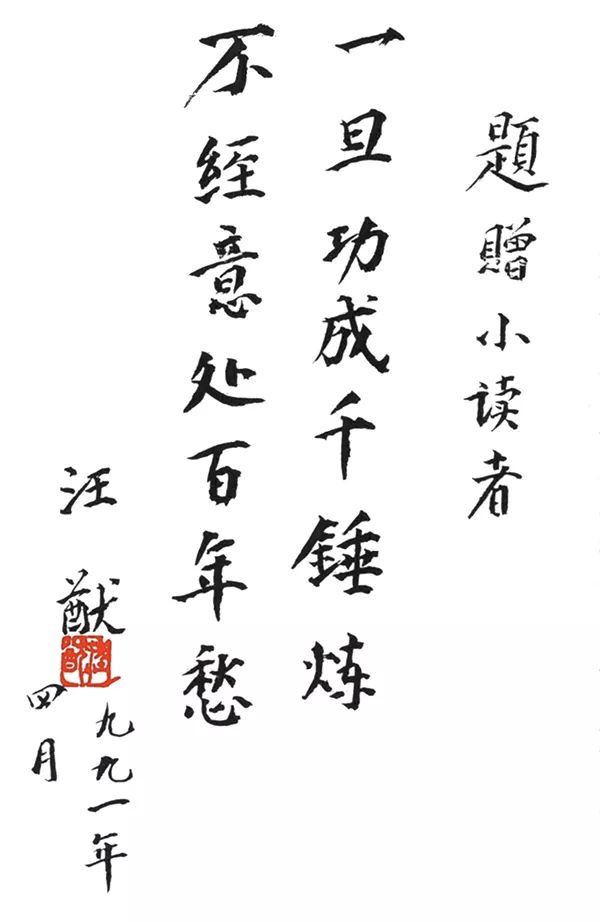 題贈小读者
一旦功成千錘炼
不經意处百年愁
汪猷
九九一年
四月